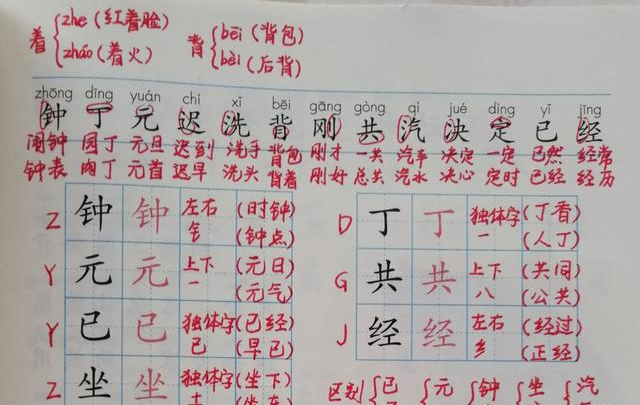 着 { zhe (红着脸) 背 { bēi (背包)
zháo (着火) bèi (后背)
zhōng dīng yuán chí xǐ bēi gāng gòng qì jué dìng yǐ jīng
钟 丁 元 迟 洗 背 刚 共 汽 决 定 已 经
闹钟 园丁 元旦 迟到 洗手 背包 刚才 一共 汽车 决定 一定 已然 经常
钟表 肉丁 元首 迟早 洗头 背着 刚好 总共 汽水 决心 定时 已经 经历
Z 钟 钟 左右 (时钟) D 丁 丁 独体字 (丁香)
钅 (钟点) 一 (人丁)
Y 元 元 上下 (元日) G 共 共 上下 (共同)
一 (元气) 八 (公共)
Y 已 已 独体字 (已经) J 经 经 左右 (经过)
已 (早已) 纟 (正经)
Z 坐 坐 独体字 (坐下) 区别 { 已 { 元 { 钟 { 坐 { 汽
土